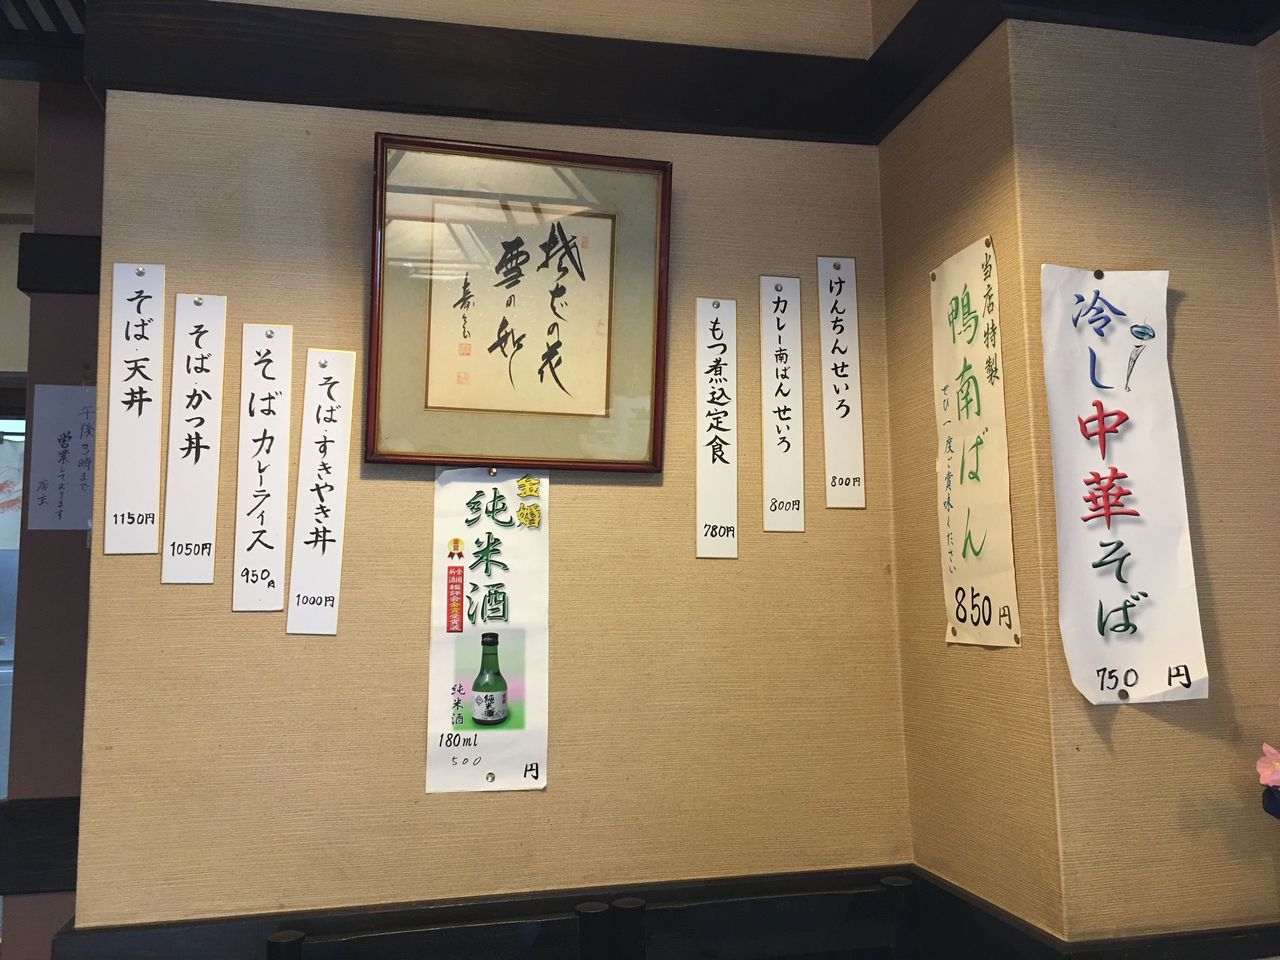 冷し中華そば
750 円
当店特製
鴨南ばん
ぜひ一度ご賞味ください
850円
けんちんせいろ
800円
カレー南ばんせいろ
800円
もつ煮込定食
780円
そばの花
雪の如し
金婚
純米酒
全国
新酒
鑑評会金賞受賞蔵
純米酒
純米酒
180ml
500 円
そばすきやき丼
1000円
そばカレーライス
950円
そば・かつ丼
1050円
そば・天丼
1150円
午後3時まで
営業しております
店主